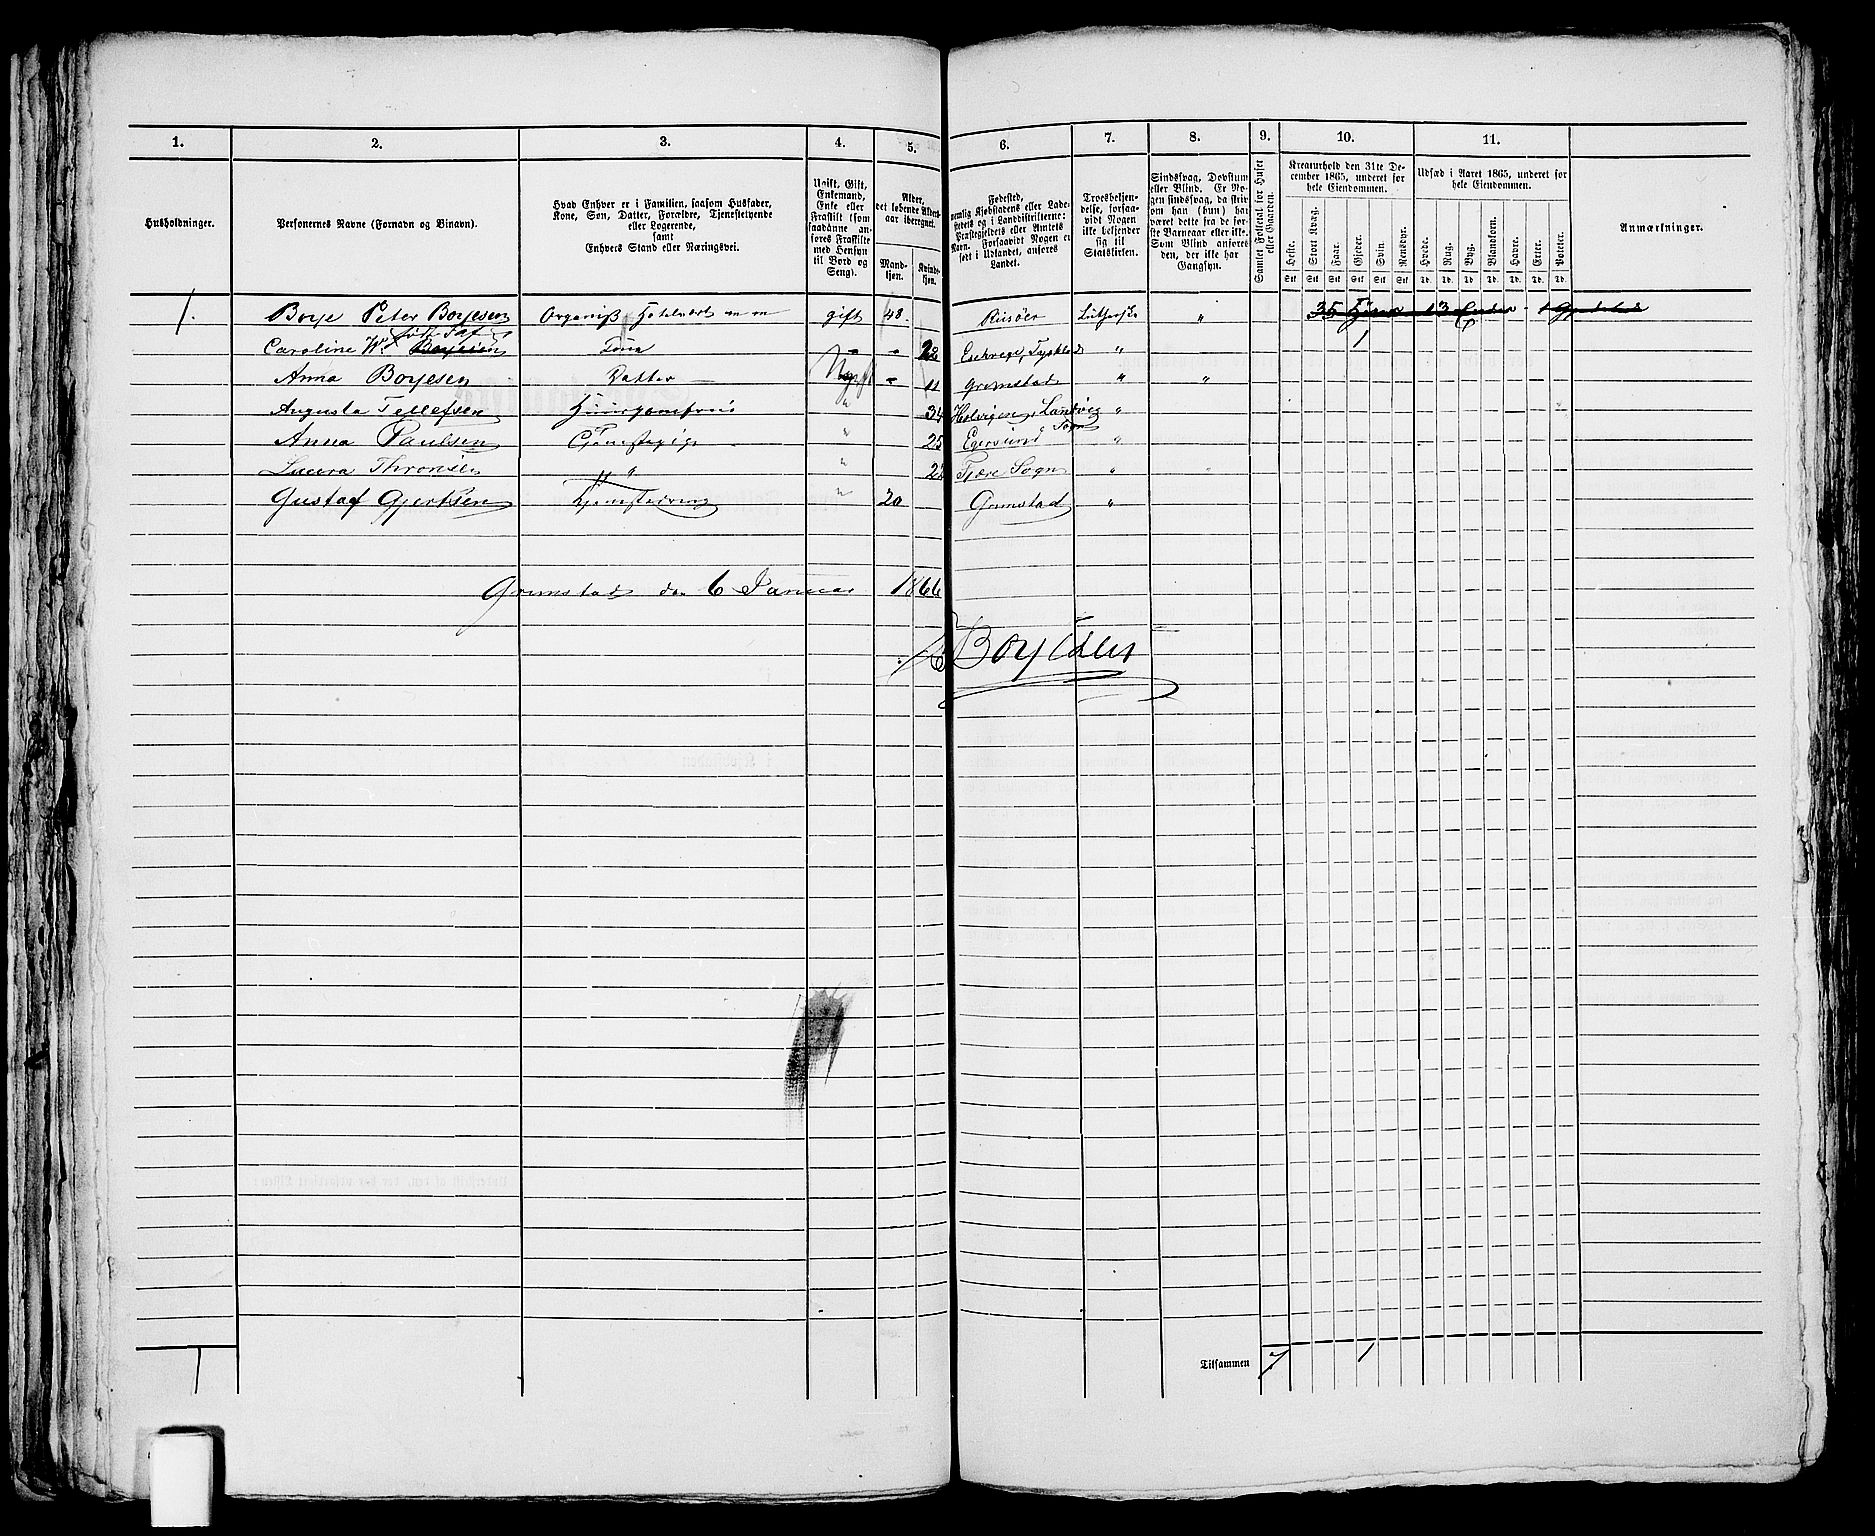 1. 2. 3. 4. 5. 6. 7. 8. 9. 10. 11.
Husholdninger.
Personernes Navne (Fornavn og Binavn).
Hvad Enhver er i Familien, saasom Husfader,
Kone, Søn, Datter, Forældre, Tjenestetyende
eller Logerende,
samt
Enhvers Stand eller Næringsvei.
Ugift, Gift,
Enkemand,
Enke eller
Fraskilt (som
saadanne an-
føres Fraskilte
med Hensyn
til Bord og
Seng).
Alder,
det løbende Alders-
aar iberegnet.
Mand-
kjøn.
Kvinde-
kjøn.
Fødested,
nemlig Kjøbstadens eller Lade-
stedets og i Landdistrikterne:
Præstegjeldets eller Amtets
Navn. Forsaavidt Nogen er
født i Udlandet, anføres
Landet.
Troesbekjen-
delse, forsaa-
vidt Nogen
ikke bekjender
sig til
Statskirken.
Sindssvag, Døvstum
eller Blind. Er No-
gen sindssvag, da skri-
om han (hun) har
været dette fra de før-
ste Barneaar eller ikke.
Som Blind anføres
den, der ikke har
Gangsyn.
Samlet Folketal for Huset
eller Gaarden.
Kreaturhold den 31te De-
cember 1865, underet for
hele Eiendommen.
Heste. Stort Kvæg. Faar. Gjeder. Svin. Rensdyr.
Stk Stk Stk Stk Stk Stk
Udsæd i Aaret 1865, underet for
hele Eiendommen.
Hvede. Rug. Byg. Blandkorn. Havre. Erter. Poteter.
Td. Td. Td. Td. Td. Td. Td.
Anmærkninger.
1. Boye Peter Boyesen Organist Hotelvært m m gift 48. Risöer Lutherske " 35 Höns 13 Ender 1
Caroline W. Boyesen Kone - - Eschwege, Tyskland " 1
Anna Boyesen Datter - Ugift - 11 Grimstad " "
Augusta Tellefsen Huusjomfru " 34 Landvig Sogn "
Anna Paulsen Tjenestepige " 25 Egersund "
Laura Thronsen " " 22 Fjære Sogn "
Gustaf Gjertsen " 20 Grimstad "
Grimstad den 6 Januar 1866
Boyesen
Tilsammen 7 1
1